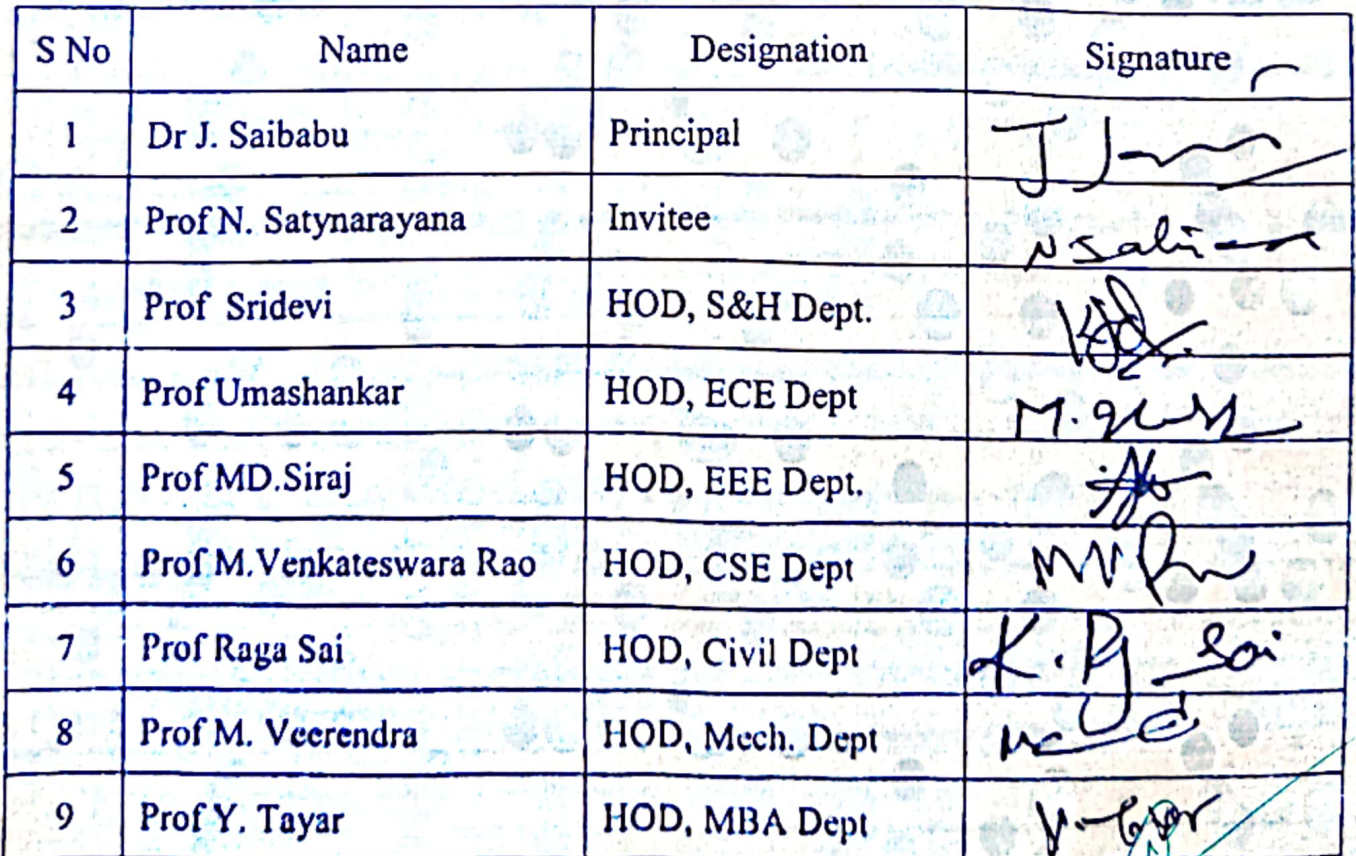 S No Name Designation Signature
1 Dr J. Saibabu Principal
2 Prof N. Satynarayana Invitee
3 Prof Sridevi HOD, S&H Dept.
4 Prof Umashankar HOD, ECE Dept
5 Prof MD.Siraj HOD, EEE Dept.
6 Prof M.Venkateswara Rao HOD, CSE Dept
7 Prof Raga Sai HOD, Civil Dept
8 Prof M. Veerendra HOD, Mech. Dept
9 Prof Y. Tayar HOD, MBA Dept